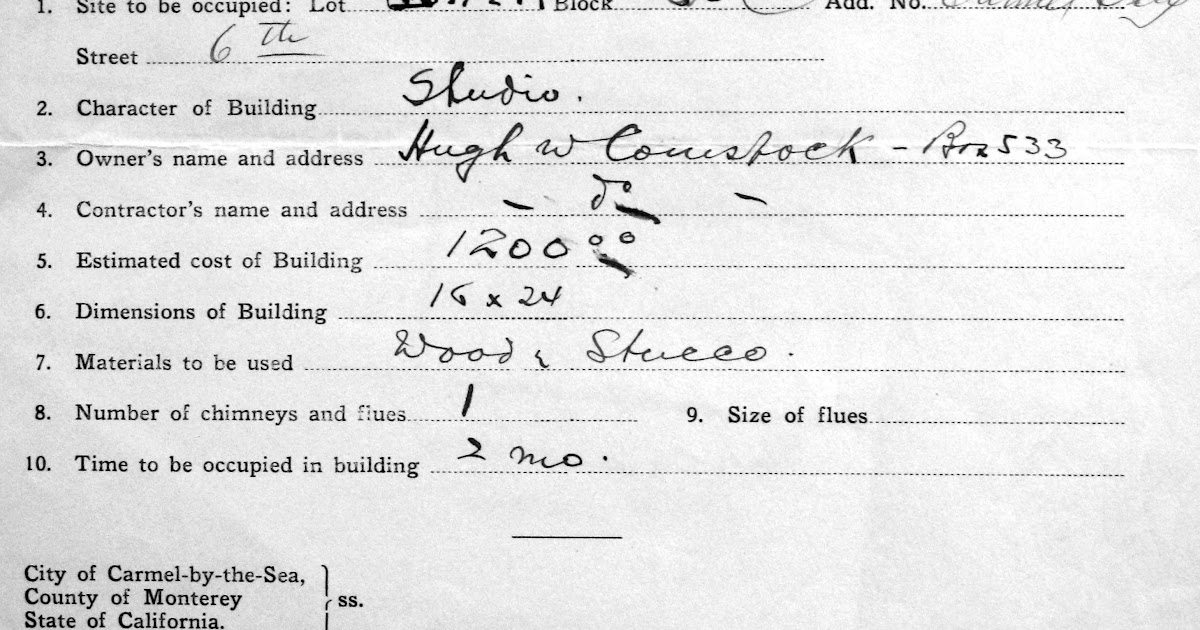 1. Site to be occupied: Lot Block Add. No. Carmel City
Street 6th
2. Character of Building Studio.
3. Owner's name and address Hugh W Comstock - Box 533
4. Contractor's name and address - do -
5. Estimated cost of Building 1200 00
6. Dimensions of Building 16 x 24
7. Materials to be used Wood & Stucco.
8. Number of chimneys and flues 1 9. Size of flues
10. Time to be occupied in building 2 mo.
City of Carmel-by-the-Sea,
County of Monterey ss.
State of California.